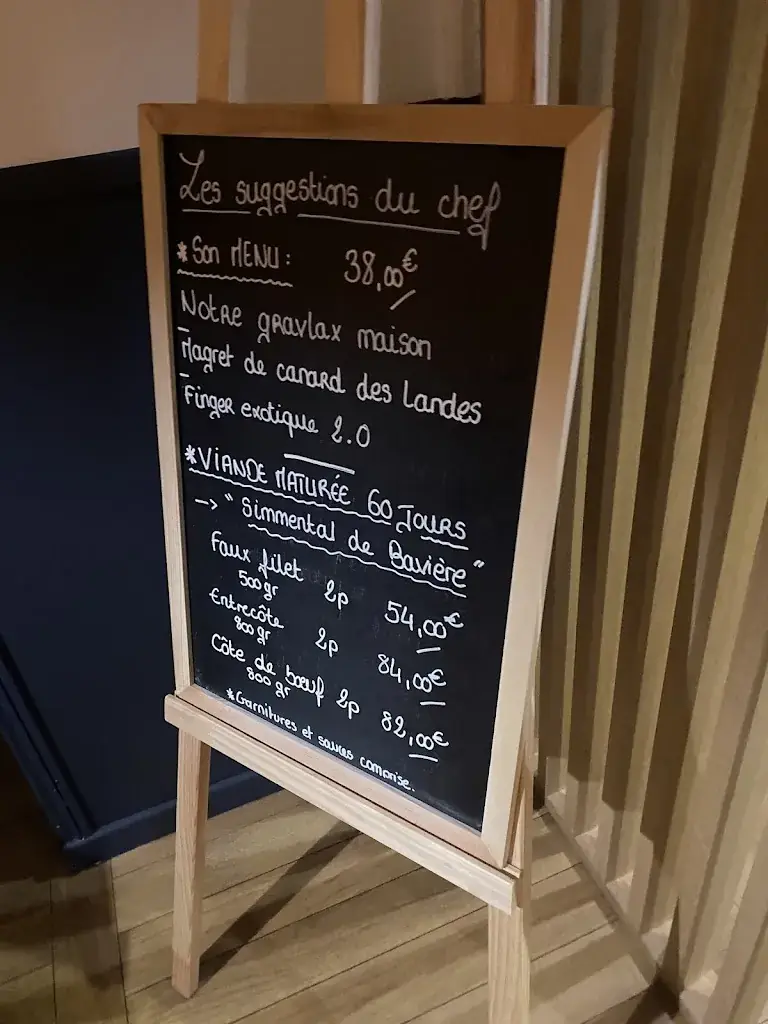 Les suggestions du chef
*Son MENU: 38,00€
Notre gravlax maison
Magret de canard des Landes
Finger exotique 2.0
*VIANDE MATURÉE 60 JOURS
-> "Simmental de Bavière"
Faux filet 2p 54,00€
500gr
Entrecôte 2p 84,00€
800gr
Côte de bœuf 2p 82,00€
800gr
*Garnitures et sauces comprise.